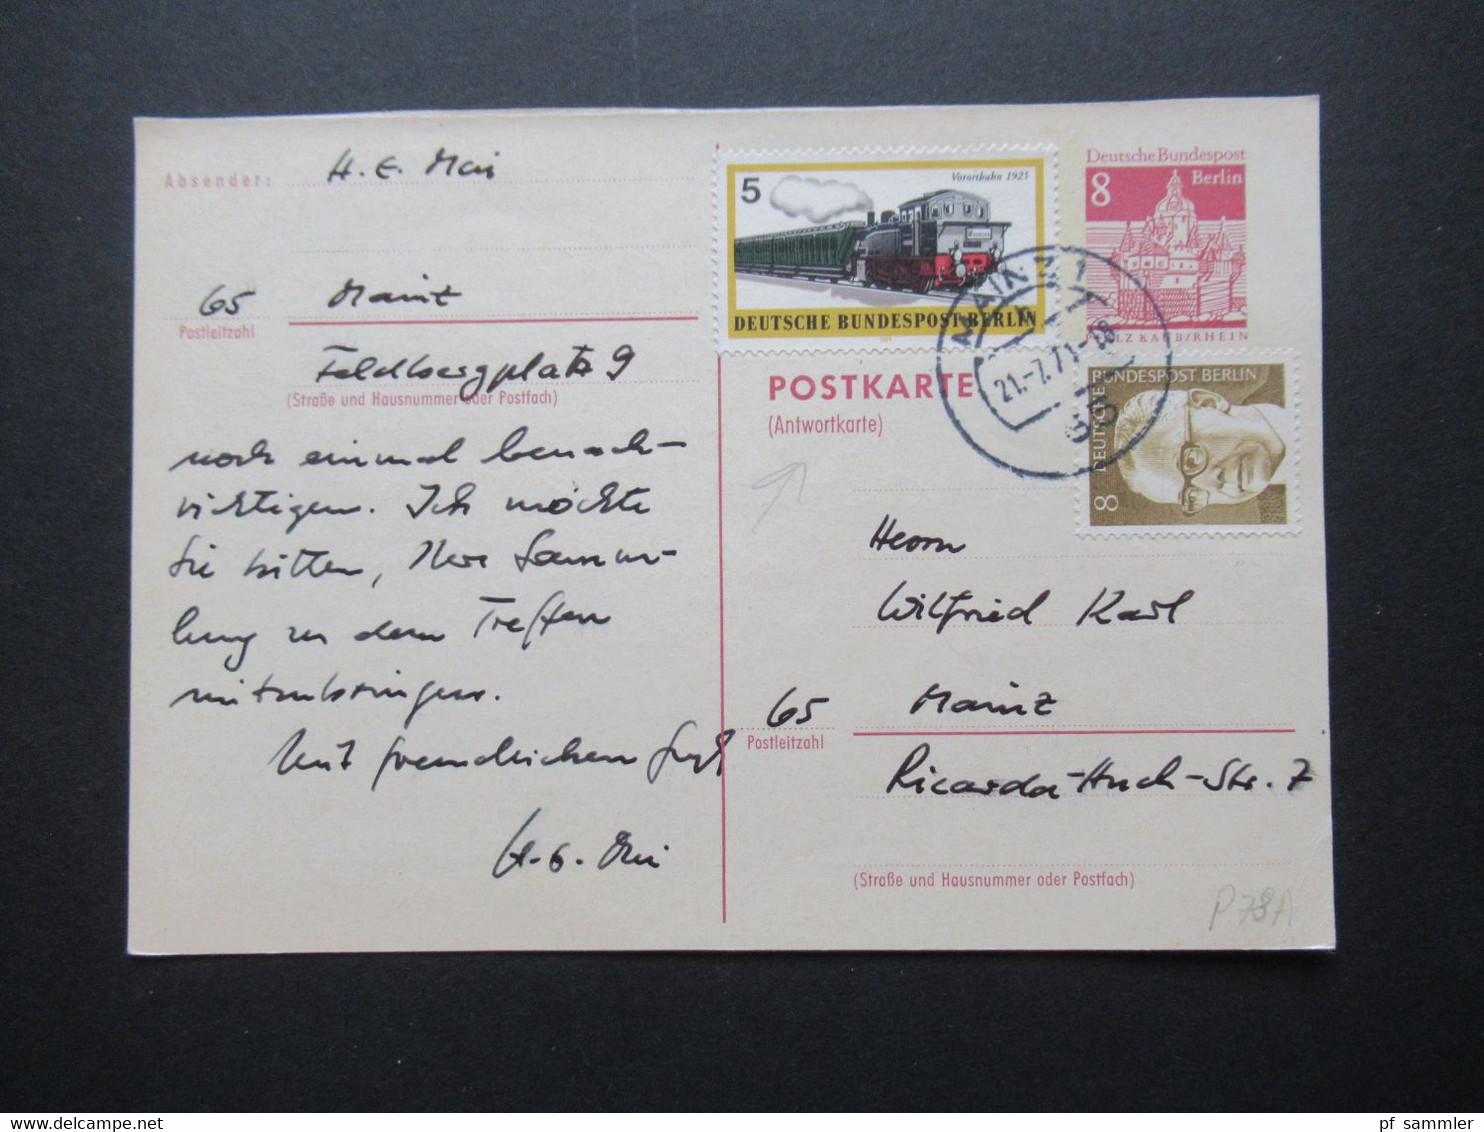 Absender:
H. E. Mai
65
Mainz
Postleitzahl
Feldbergplatz 9
(Straße und Hausnummer oder Postfach)
noch einmal benach-
richtigen. Ich möchte
Sie bitten, Ihre Samm-
lung zu dem Treffen
mitzubringen.
Mit freundlichem Gruß
H. E. Mai
5
Vorortbahn 1925
DEUTSCHE BUNDESPOST BERLIN
Deutsche Bundespost
8
Berlin
PFALZ KAUB/RHEIN
MAINZ 1
21.-7.71-18
65
DEUTSCHE BUNDESPOST BERLIN
8
POSTKARTE
(Antwortkarte)
Herrn
Wilfried Karl
65
Mainz
Postleitzahl
Ricarda-Huch-Str. 7
(Straße und Hausnummer oder Postfach)
P 78A
pf_sammler